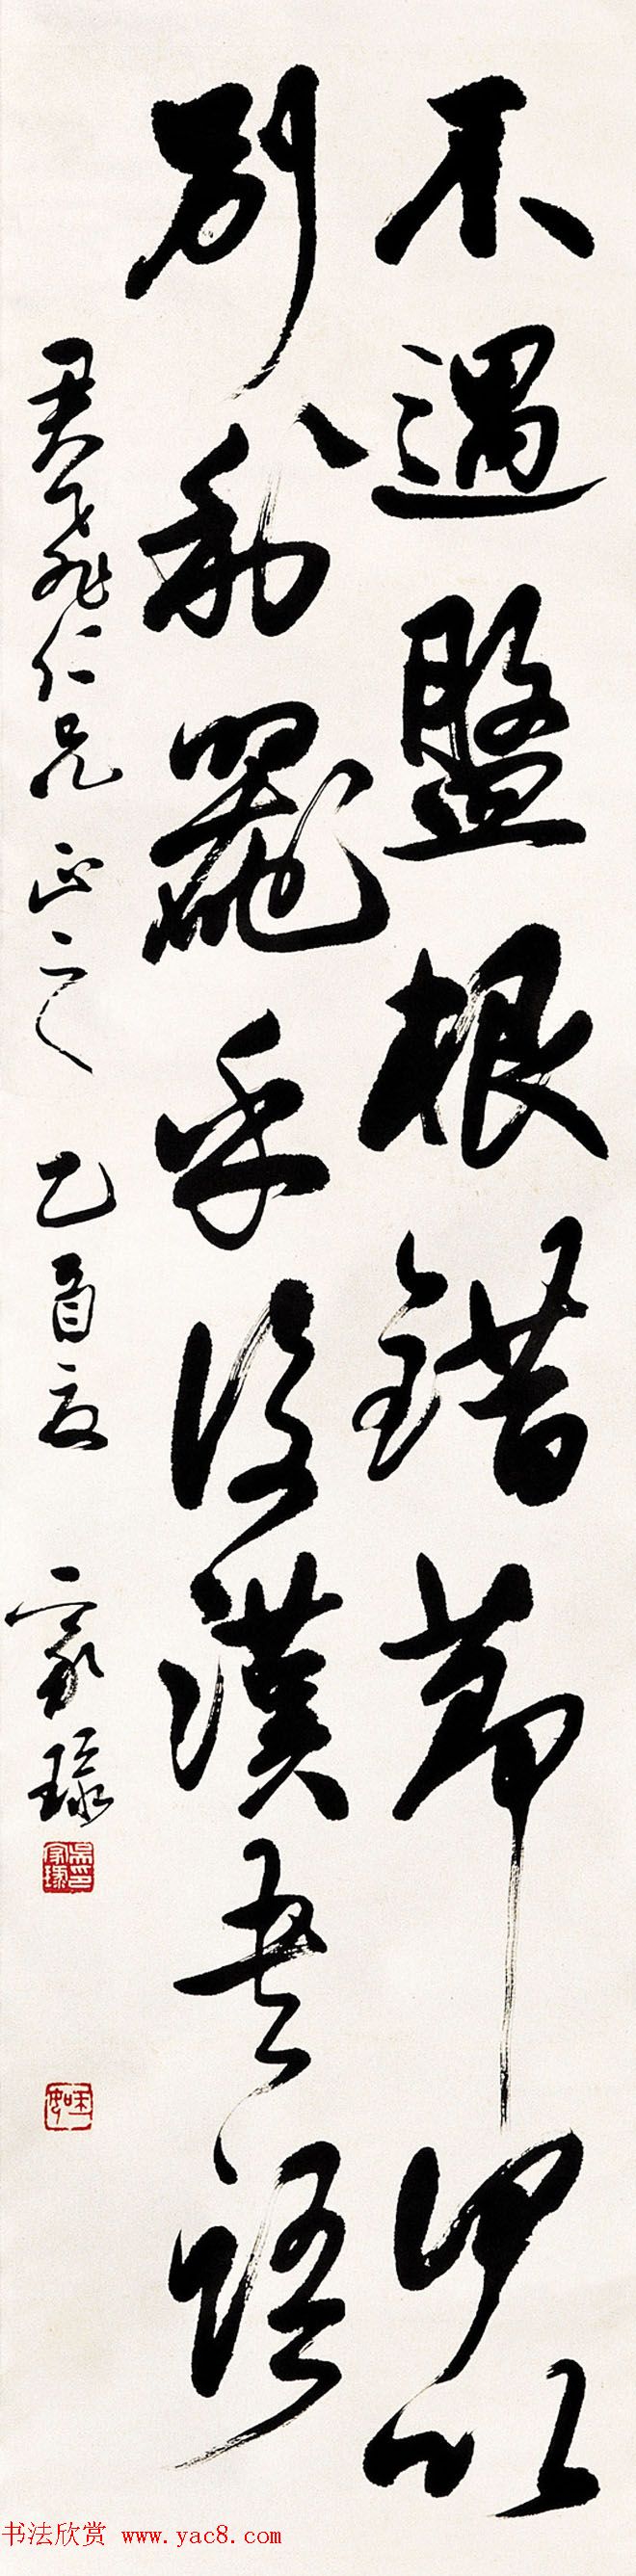 不遇盤根錯節何以
別利器乎後漢書語
君飛仁兄正之 乙酉夏 家琭
書法欣赏 www.yac8.com